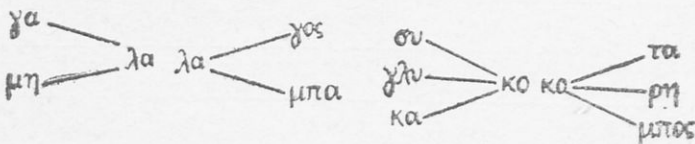 γα
μη
λα λα
γος
μπα
συ
γλυ
κα
κο κο
τα
ρη
μπος